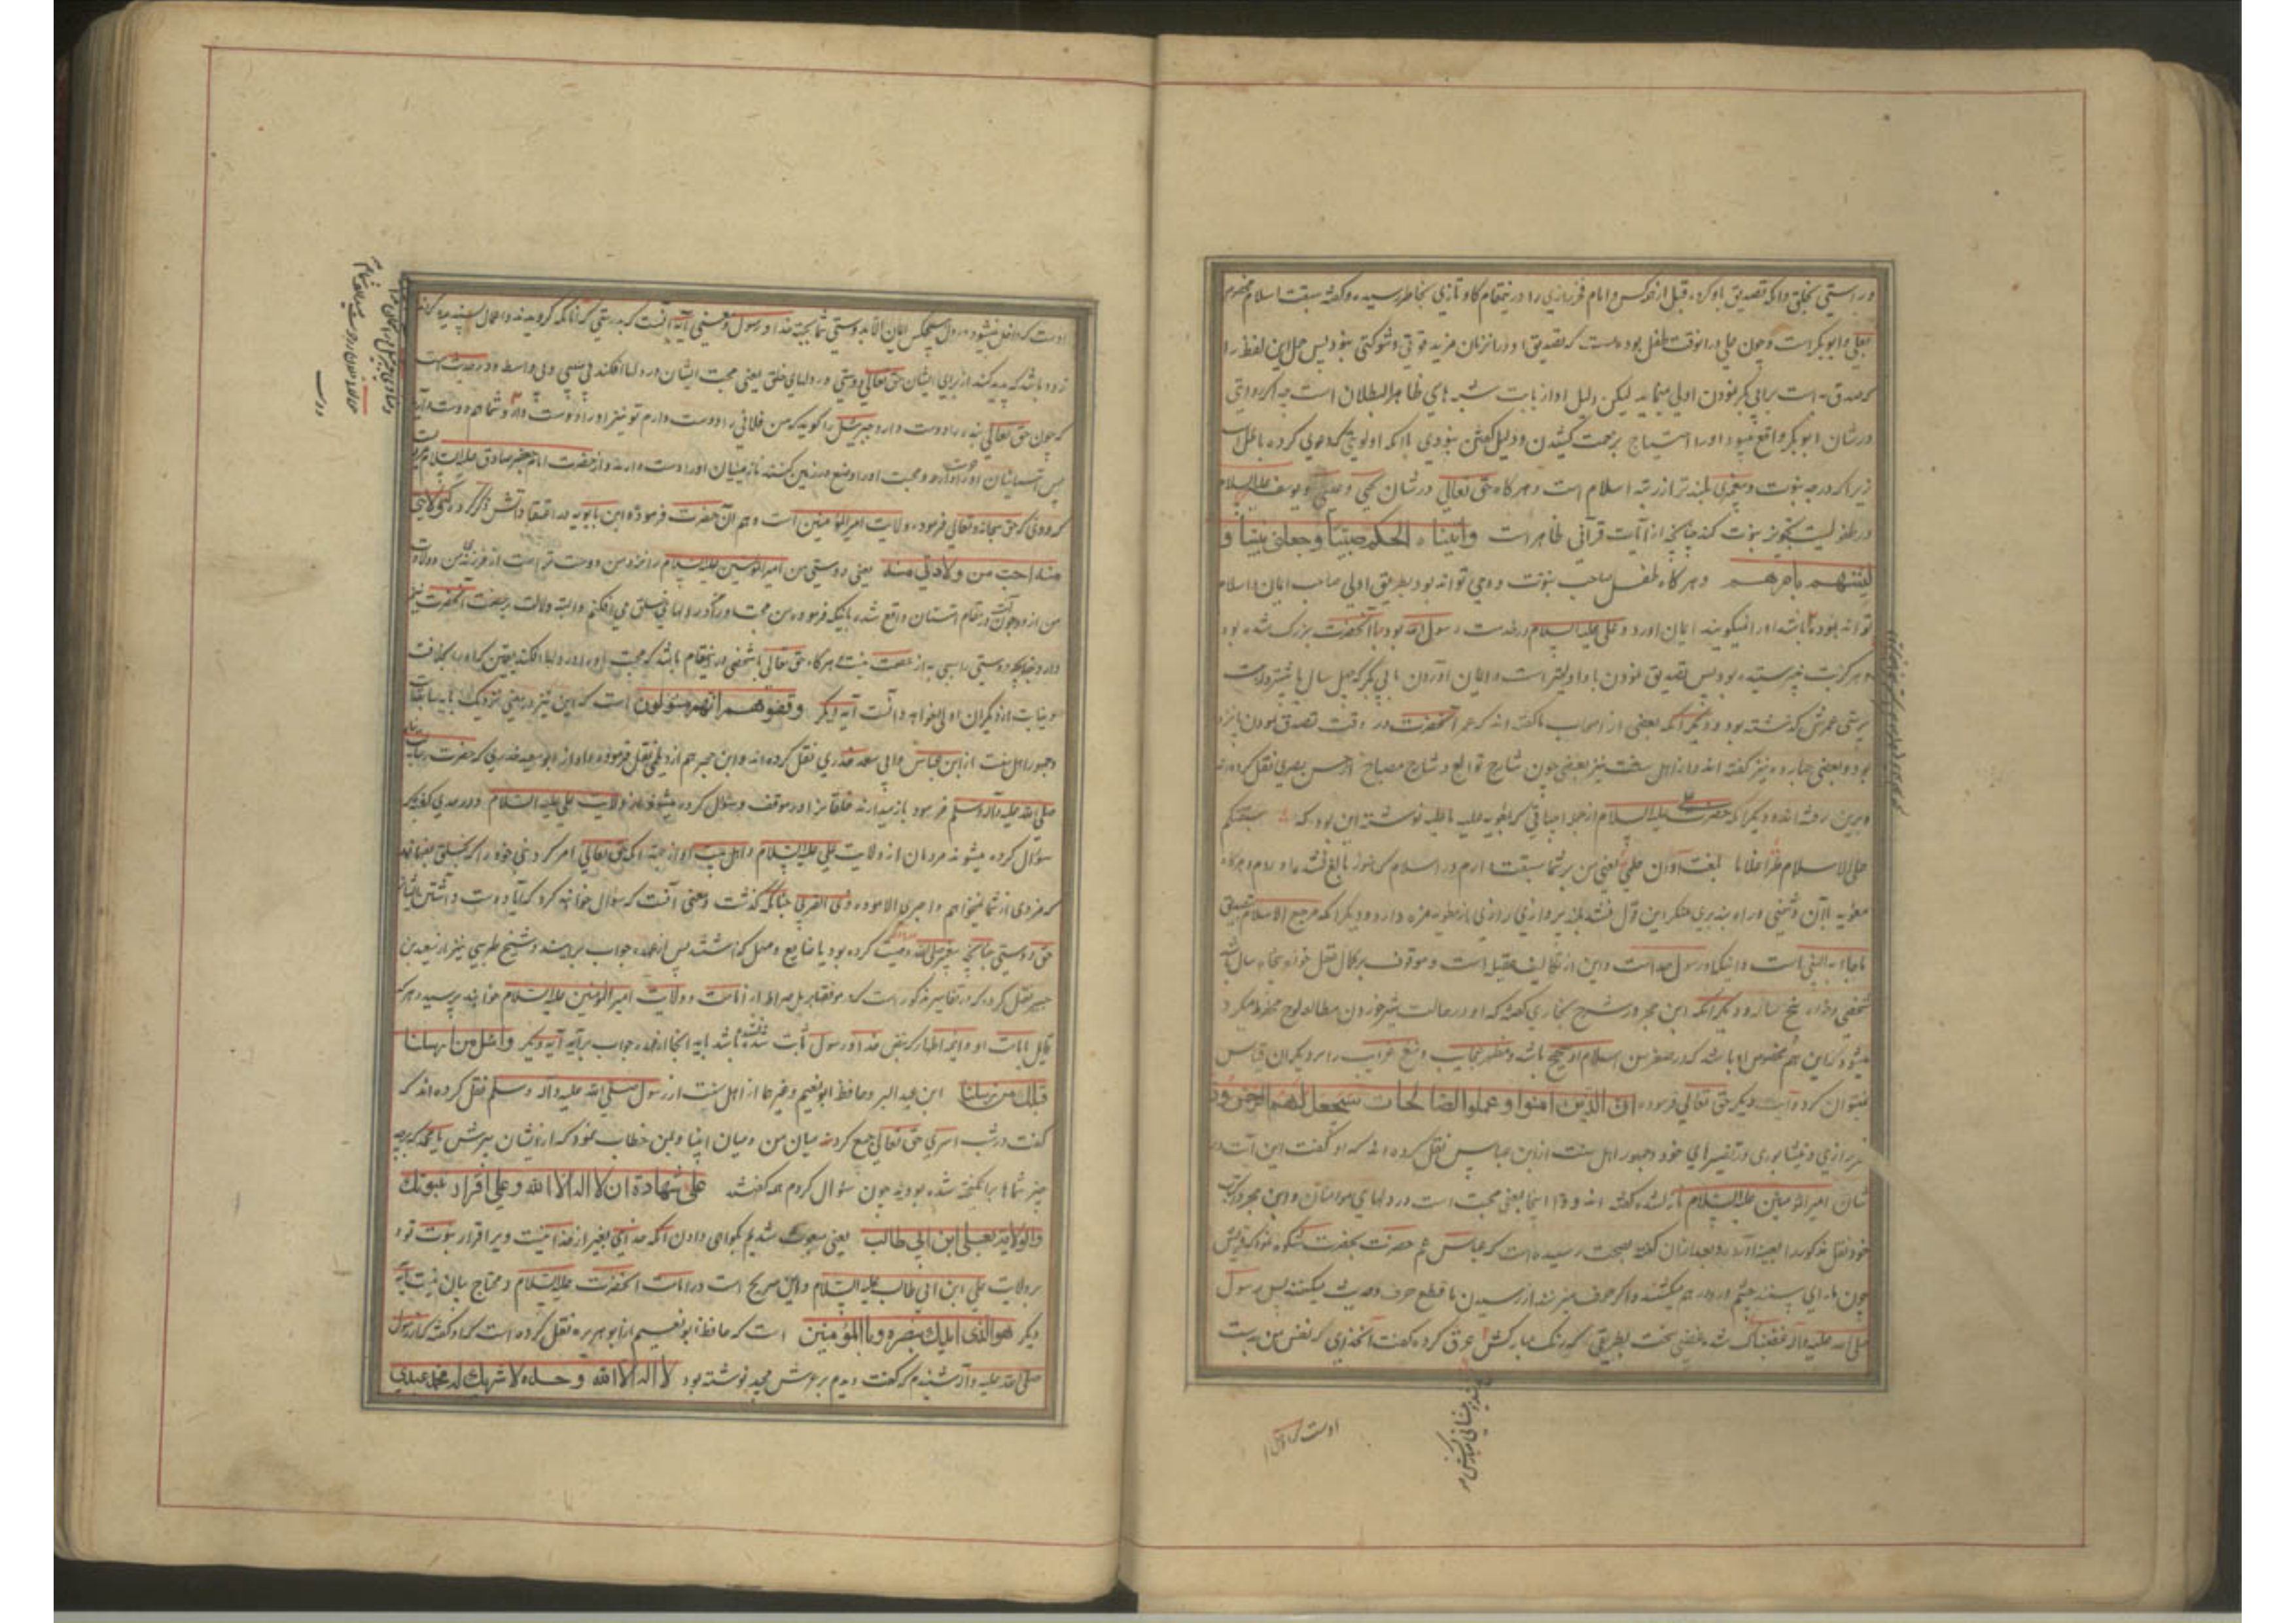 در راستی بخلق وانکه تصدیق باو کرد، قبل از هر کس و امام فخر رازی را در نیمقام کاو تازی بخاطر رسیده و گفته سبقت اسلام مخصوص
بعلی و ابو بکر است و چون علی در انوقت طفل بوده است که تصدیق او در انزمان مزید قوتی و شوکتی نبود پس حمل این لفظ را
که صدق است برابی بکر نمودن اولی مینماید لیکن دلیل او از بابت شبه های ظاهر البطلان است چه اگر روایتی
در شان ابو بکر واقع میبود او را احتیاج بزحمت کشیدن و دلیل گفتن نبودی با انکه اولویتی که دعوی کرده باطل است
زیرا که درجه نبوت و پیغمبری بلندتر از رتبه اسلام است و هر کاه حق تعالی در شان یحیی و عیسی و یوسف علیه السلام
در طفولیت تجویز نبوت کند چنانچه از آیات قرآنی ظاهر است واتیناه الحکم صبیّا وجعلنی نبیّا و
لتنبئنهم بامرهم و هر کاه طفل صاحب نبوت و وحی تواند بود بطریق اولی صاحب ایمان و اسلام
تواند بود باشد او را نمیگویند ایمان اورد و علی علیه السلام در خدمت رسول الله بود با آنحضرت بزرگ شده بود
و هرگز بت نپرستیده بود پس تصدیق نمودن باو اولیتر است و ایمان آوردن ابی بکر که چهل سال یا بیشتر در بت
پرستی عمرش گذشته بود و دیگر آنکه بعضی از اصحاب ما گفته اند که عمر آنحضرت در وقت تصدیق نمودن پانزده
بود و بعضی چهارده نیز گفته اند و از اهل سنت نیز بعضی چون شارح طوالع و شارح مصابیح از حسن بصری نقل کرده اند
و برین رفته اند و دیگر آنکه حضرت علیه السلام از جمله ابیاتی که بمعویه علیه ما علیه نوشته این بود که سبقتکم
علی الاسلام طرّا غلاما ما بلغت اوان حلمی یعنی من بر شما سبقت دارم در اسلام که هنوز بالغ نشده بودم و هر کاه
معویه با آن دشمنی
ما جاء به النبی است و اینکه او رسول خداست و این از تکالیف عقلیه است و موقوف بر کمال عقل خواه پنجاه سال باشد
شخصی و خواه پنج ساله و دیگر آنکه ابن حجر در شرح بخاری گفته که او در حالت شیر خوردن مطالعه لوح محفوظ میکرد
میشود که این هم مخصوص او باشد که در صغر سن اسلام او صحیح باشد و مظهر عجایب و منبع غرایب را بر دیگران قیاس
نمیتوان کرد و آیت دیگر حق تعالی فرموده ان الذین امنوا وعملوا الصالحات سیجعل لهم الرحمن ودا
فخر رازی و نیشابوری در تفسیرهای خود و جمهور اهل سنت از ابن عباس نقل کرده اند که او گفت این آیت در
شان امیر المؤمنین علیه السلام نازل شده گفته اند ودّا اینجا بمعنی محبت است در دلهای مومنان و ابن حجر در کتاب
خود نقل مذکور را بعینه آورده و بعد از ان گفته بصحت رسیده است که عباس عم حضرت بحضرت شکوه نمود که قریش
چون ما را می بینند چشم و رو در هم میکشند و اگر حرف میزنند از رسیدن ما قطع حرف و حدیث میکنند پس رسول
صلی الله علیه وآله غضبناک شد غضبی سخت بطریقی که رنگ مبارکش عرق کرده گفت آنخدای که نفس من بدست
اوست که داخل
اوست که داخل نمیشود در دل هیچکس ایمان الا بدوستی شما بجهة خدا و رسول و معنی آیه آنست که بدرستی که آنانکه گرویدند و اعمال پسندیده کردند
زود باشد که پدید کند از برای ایشان حق تعالی دوستی در دلهای خلق یعنی محبت ایشان در دلها افکند بی سببی و بی واسطه و در حدیث است
که چون حق تعالی بنده را دوست دارد جبرئیل را گوید که من فلانی را دوست دارم تو نیز او را دوست دار و شما هم دوست دارید
پس آسمانیان او را دوست دارند و محبت او را وضع در زمین کنند تا زمینیان او را دوست دارند و از حضرت امام جعفر صادق علیه السلام مرویست
که ودی که حق سبحانه و تعالی فرموده ولایت امیر المؤمنین است و هم آن حضرت فرموده ابن بابویه در اعتقاداتش ذکر کرده که ولایتی
منه احب من ولادتی منه یعنی دوستی من امیر المؤمنین علیه السلام را نزد من دوست تر است از فرزندی من و ولادت
من از او و چون آیت در مقام امتنان واقع شده باینکه فرموده من محبت او را در دلهای خلق می افکنم و البته دلالت بر عصمت آنحضرت نیز
دارد چه دوستی را سببی به از عصمت نیست هر کاه حق تعالی با شخصی در نیمقام باشد که محبت او را در دلها افکند یقین که او بخلافت
و نیابت از دیگران اولی خواهد دانست آیه دیگر وقفوهم انهم مسئولون است که این نیز در معنی نزدیک بآیه سابقه است
و جمهور اهل سنت از ابن عباس و ابی سعید خدری نقل کرده اند و ابن حجر هم از دیلمی نقل فرموده و او از ابو سعید خدری که حضرت رسالت پناه
صلی الله علیه وآله وسلم فرمود باز میدارند خلقانرا در موقف و سؤال کرده میشوند از ولایت علی علیه السلام و در حدیث دیگر
سؤال کرده میشوند مردمان از ولایت علی علیه السلام و اهل بیت او از جهة انکه حق تعالی امر کرد نبی خود را که بخلق بفهماند
که مزدی از شما نمیخواهم واجری الا مودت ذی القربی چنانکه گذشت و معنی آنست که سؤال خواهند کرد که آیا دوست داشتن ایشانرا
حق دوستی چنانچه پیغمبر صلی الله وصیت کرده بود یا ضایع و مهمل گذاشتند پس از عهده جواب برمیایند و شیخ طبرسی نیز از سعید بن
جبیر نقل کرده که در تفاسیر مذکور است که موقف بر پل صراط از امامت و ولایت امیر المؤمنین علیه السلام خواهند پرسید و هر که
قایل بامامت او و ائمه اطهار که بنص خدا و رسول ثابت شده نباشد باید آنجا از عهده جواب برآید آیه دیگر واسئل من ارسلنا
قبلک من رسلنا ابن عبد البر و حافظ ابو نعیم و غیرها از اهل سنت از رسول صلی الله علیه وآله وسلم نقل کرده اند که
گفت در شب اسری حق تعالی جمع کرد میان من و میان انبیا و بمن خطاب نمود که از ایشان بپرس یا محمد که بر چه
چیز شماها برانگیخته شده بودید چون سؤال کردم همه گفتند علی شهادة ان لا اله الا الله وعلی اقرار بنبوتک
والولایة لعلی ابن ابی طالب یعنی مبعوث شدیم بگواهی دادن آنکه خدائی بغیر از خدا نیست و بر اقرار نبوت تو و
بر ولایت علی ابن ابی طالب علیه السلام و این صریح است در امامت آنحضرت علیه السلام و محتاج بیان نیست آیه
دیگر هو الذی ایدک بنصره وبالمؤمنین است که حافظ ابو نعیم از ابو هریره نقل کرده است که او گفته که از رسول
صلی الله علیه وآله شنیدم که گفت دیدم بر عرش مجید نوشته بود لا اله الا الله وحده لا شریک له محمد عبدی